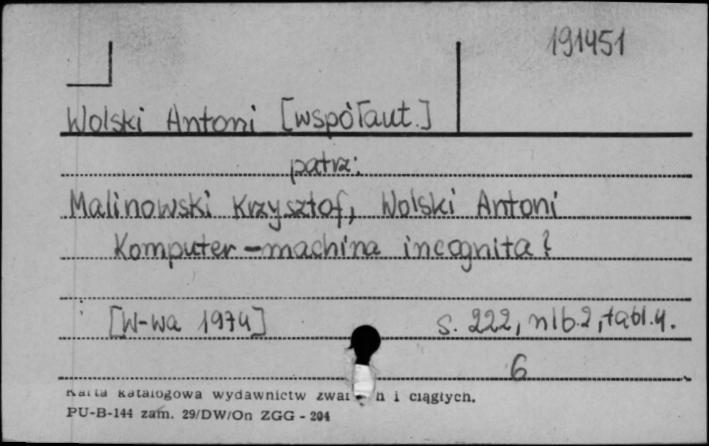 191451
Wolski Antoni [współaut.]
patrz:
Malinowski Krzysztof, Wolski Antoni
Komputer – machina incognita?
[W-wa 1974] s. 222, nlb.2, tabl.4.
6
Karta katalogowa wydawnictw i ciągłych.
PU-B-144 zam. 29/DW/On ZGG - 204